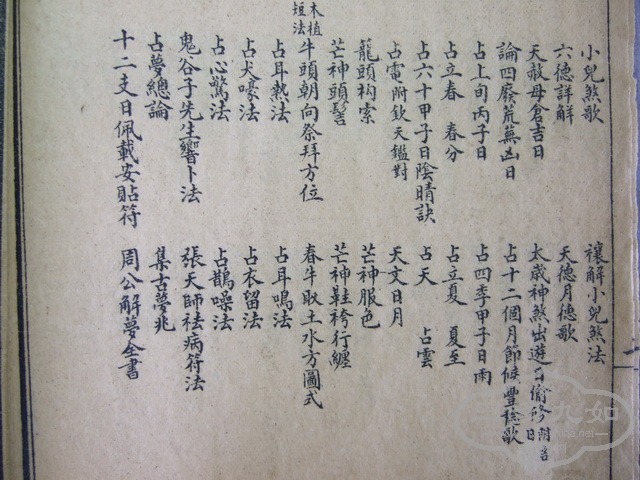 小兒煞歌 禳解小兒煞法
六德詳解 天德月德歌
天赦母倉吉日 太歲神煞出遊日偷修
論四廢荒蕪凶日 占十二個月節候豐稔歌
占上旬丙子日 占四季甲子日雨
占立春 春分 占立夏 夏至
占六十甲子日陰晴訣 占天 占雲
占電附欽天鑑對 天文日月
龍頭索 芒神服色
芒神頭髻 芒神鞋袴行纏
木植
短法
牛頭朝向祭拜方位 春牛取土水方圖式
占耳熱法 占耳鳴法
占犬嚎法 占衣留法
占心驚法 占鵲噪法
鬼谷子先生響卜法 張天師祛病符法
占夢總論 集古夢兆
十二支日佩載安貼符 周公解夢全書